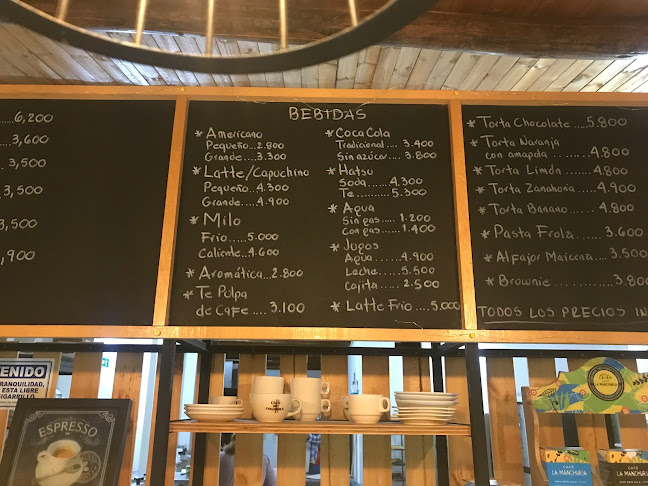 6,200
3,600
3,500
3,500
3,500
,900
BEBIDAS
* Americano
Pequeño...2.800
Grande....3.300
* Latte/Capuchino
Pequeño...4.300
Grande....4.900
* Milo
Frio.....5.000
Caliente..4.600
* Aromática...2.800
* Te Pulpa
de Cafe....3.100
* Coca Cola
Tradicional....3.400
Sin azúcar...3.800
* Hatsu
Soda.....4.300
Te......5.300
* Agua
Sin gas....1.200
Con gas....1.400
* Jugos
Agua.....4.900
Leche....5.500
Cajita...2.500
* Latte Frio....5.000
* Torta Chocolate....5.800
* Torta Naranja
con amapola.......4.800
* Torta Limón....4.800
* Torta Zanahoria...4.900
* Torta Banano...4.800
* Pasta Frola....3.600
* Alfajor Maicena...3.500
* Brownie....3.800
TODOS LOS PRECIOS IN
TENIDO
TRANQUILIDAD,
ESTA LIBRE
CIGARRILLO.
ESPRESSO
CAFÉ
LA MANCHURIA
CAFÉ
LA MANCHURIA
LA MANCHURIA